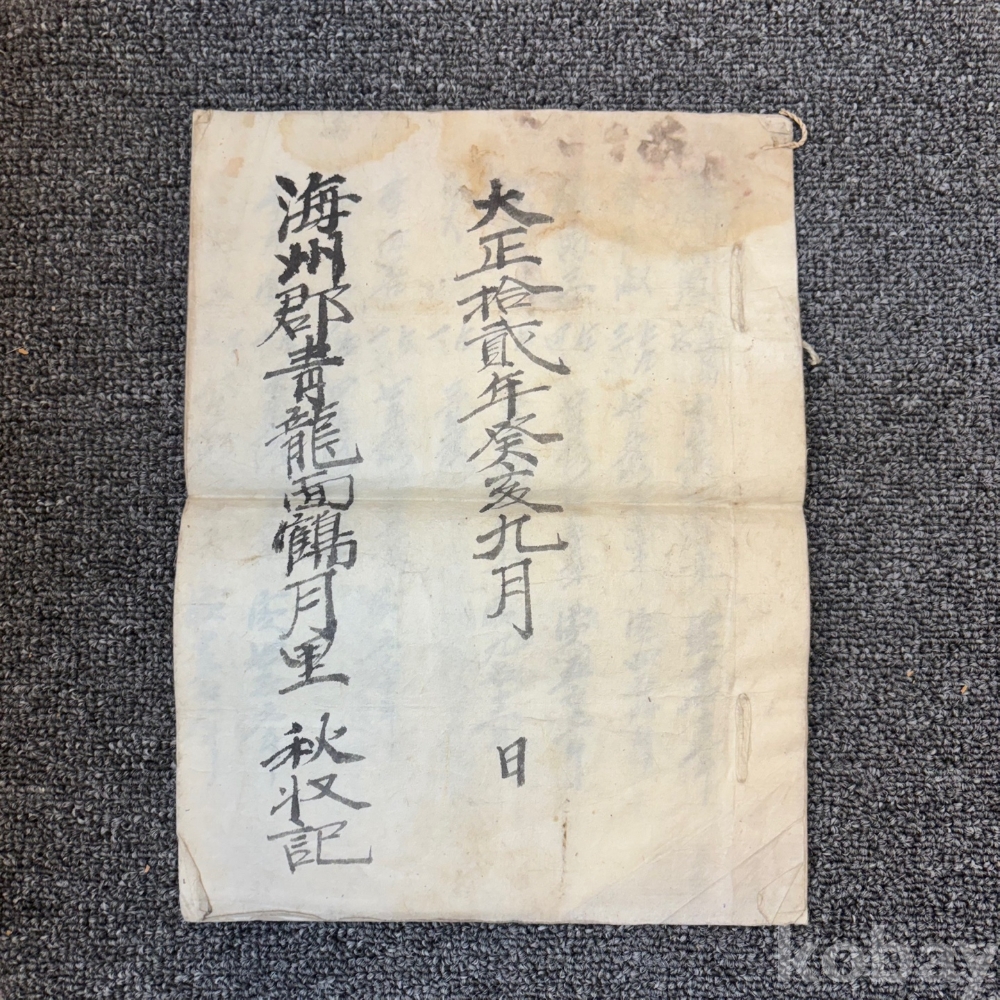 大正拾貳年癸亥九月 日
海州郡青龍面鶴月里 秋収記
kobay